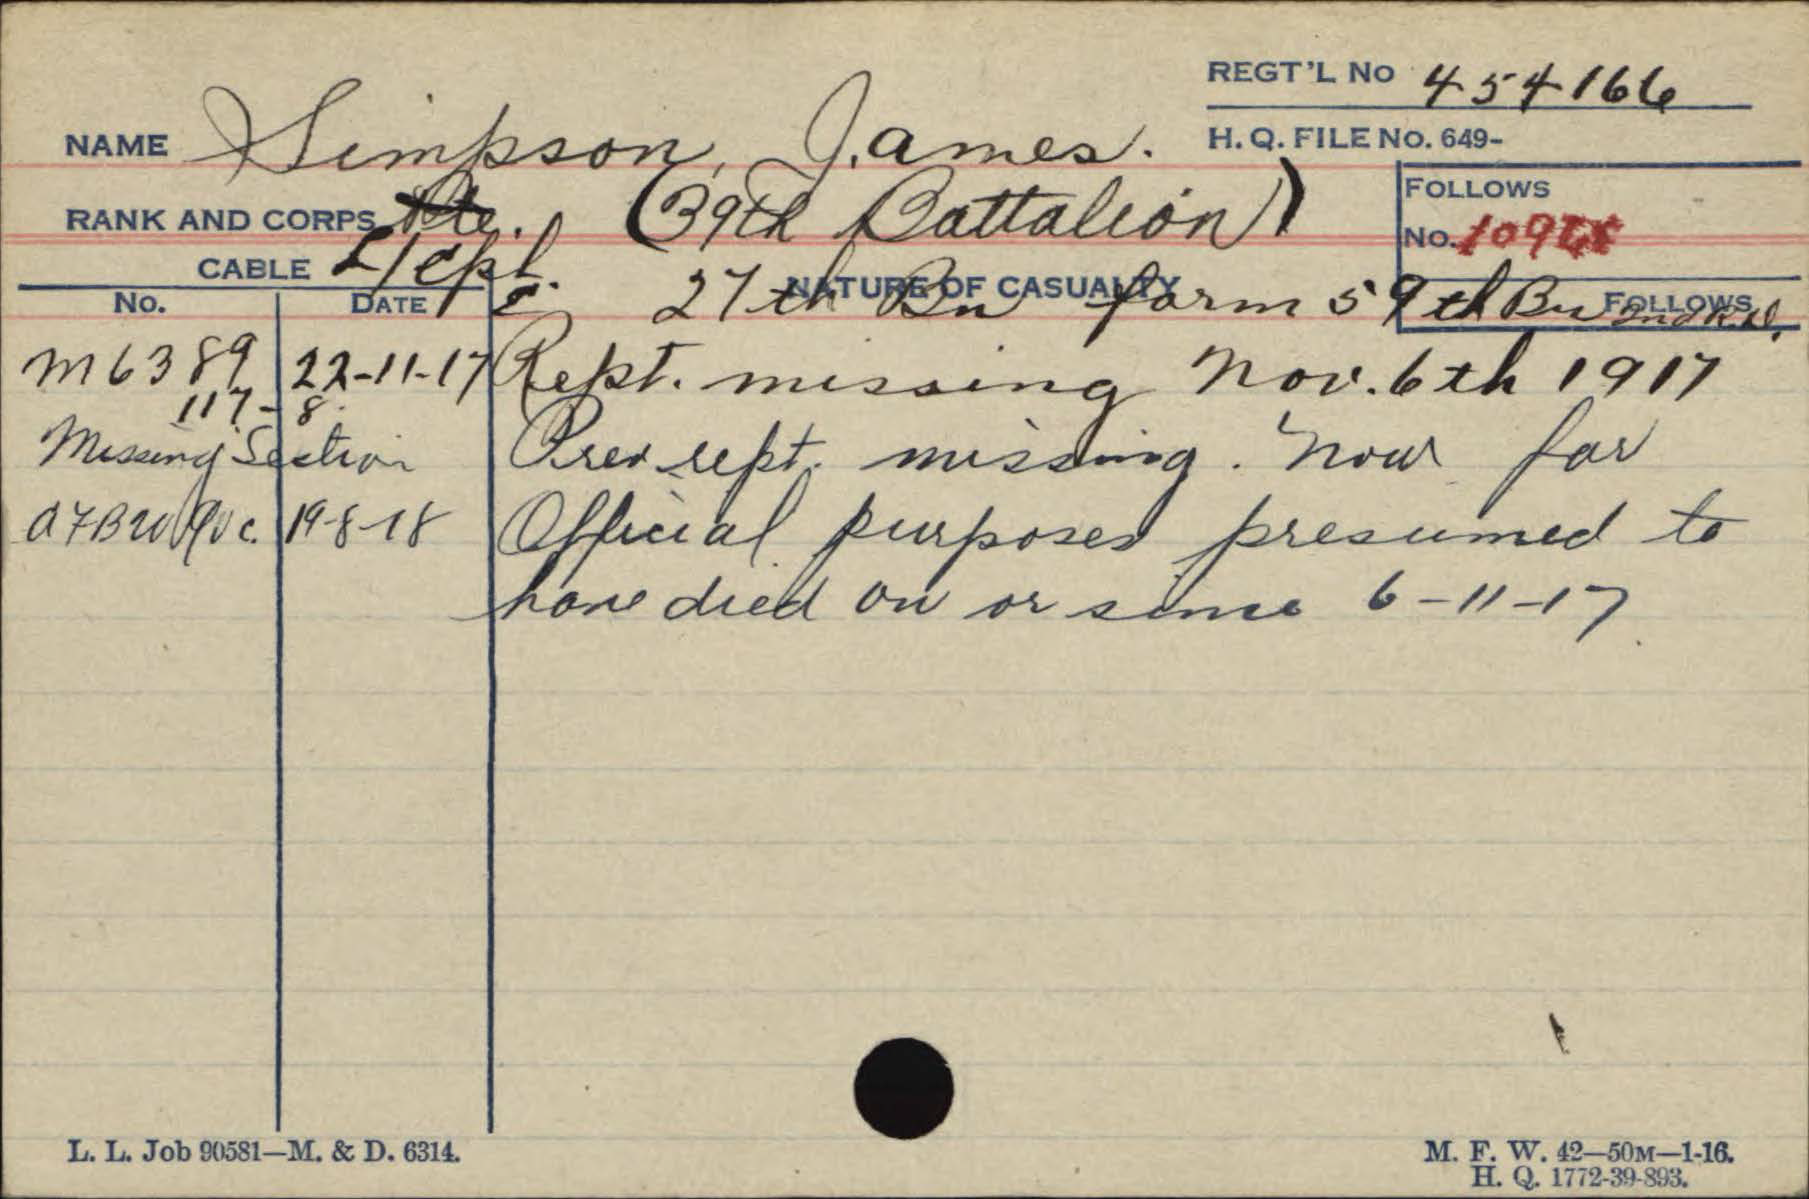 REGT'L No 454166
NAME Simpson, James.
H. Q. FILE No. 649-
RANK AND CORPS Pte. (39th Battalion)
FOLLOWS
No.
CABLE L/Cpl.
NATURE OF CASUALTY
27th Bn form 59th Bn
FOLLOWS
No. DATE
M6389 22-11-17 Rept. missing Nov. 6th 1917
117-8.
Missing Section Prev rept. missing. Now for
19-8-18 Official purposes presumed to
have died on or since 6-11-17
L. L. Job 90581—M. & D. 6314.
M. F. W. 42—50M—1-16.
H. Q. 1772-39-893.